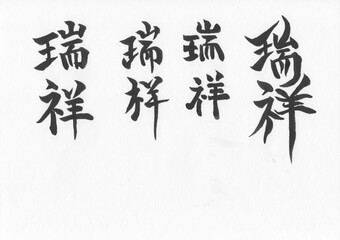 瑞祥
瑞祥
瑞祥
瑞祥